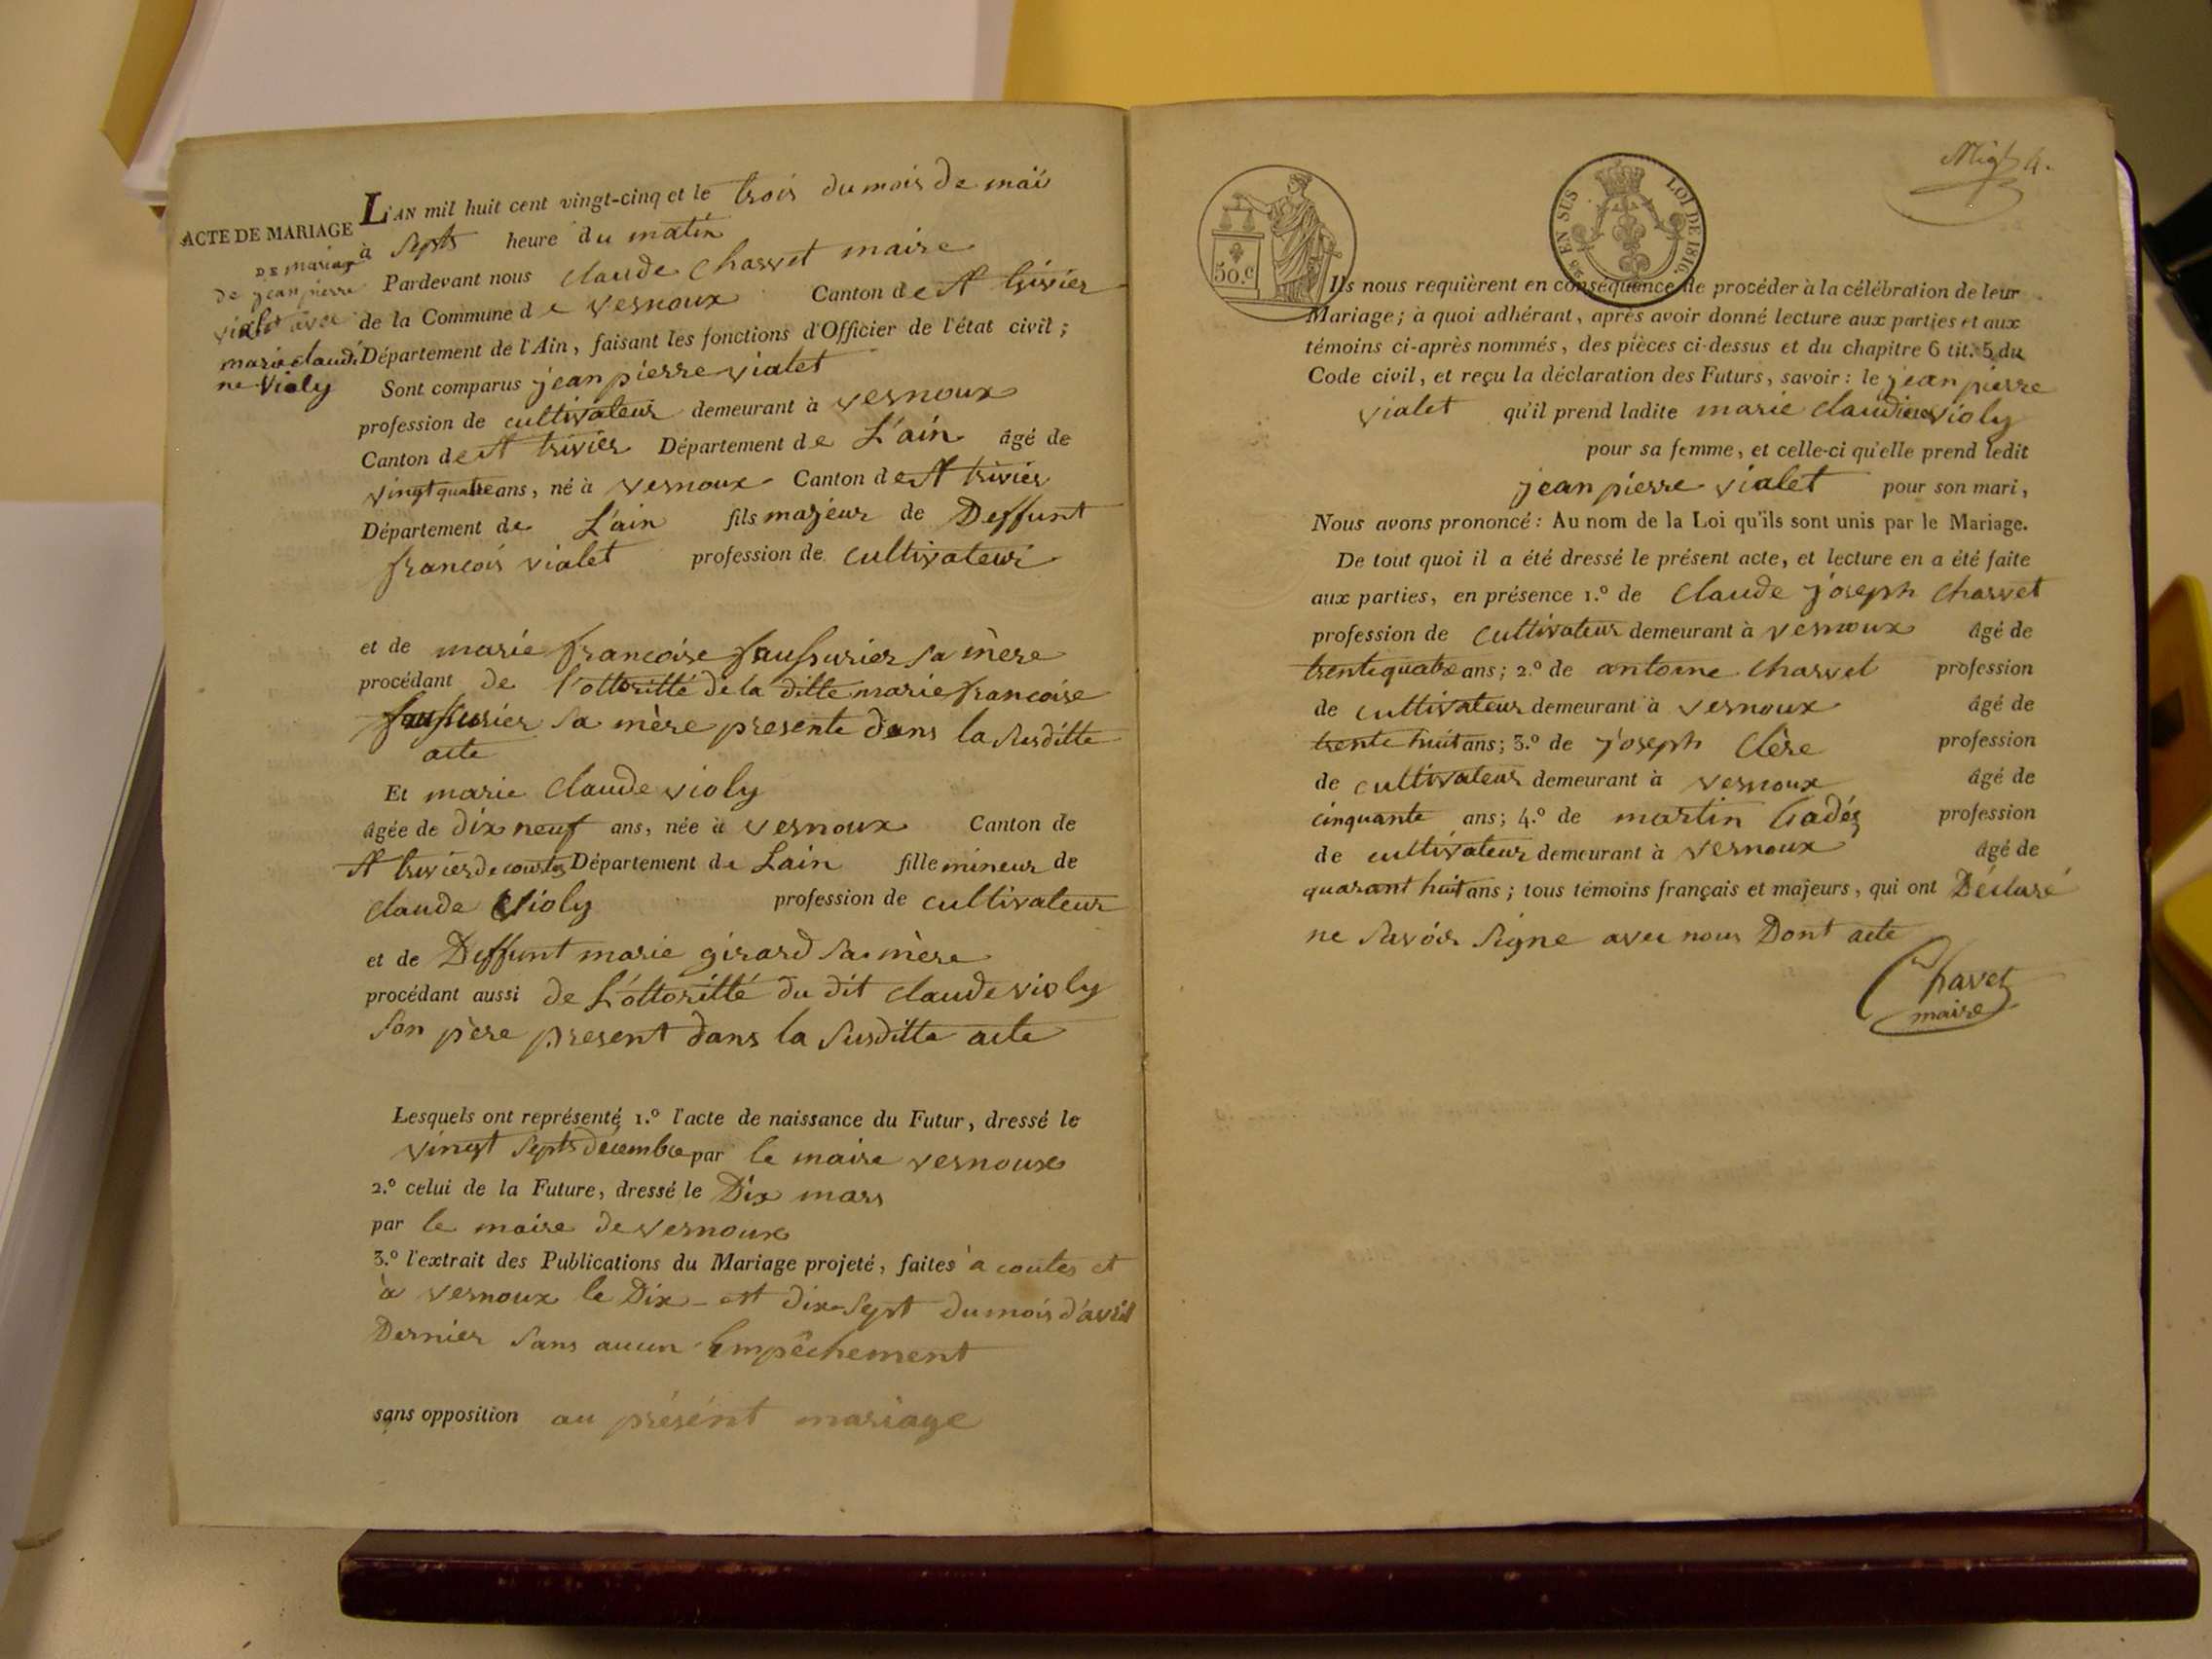 L'AN mil huit cent vingt-cinq et le trois du mois de mai
ACTE DE MARIAGE
à septs heure du matin
DE mariage
de jean pierre
vialet avec
marie claudi
ne violy
Pardevant nous claude Charvet maire
de la Commune de vernoux Canton de St trivier
Département de l'Ain, faisant les fonctions d'Officier de l'état civil ;
Sont comparus jean pierre vialet
profession de cultivateur demeurant à vernoux
Canton de St trivier Département de L'ain âgé de
vingt quatre ans, né à vernoux Canton de St trivier
Département de L'ain fils majeur de Deffunt
francois vialet profession de cultivateur
et de marie francoise saussurier sa mère
procédant de l'ottoritté de la ditte marie francoise
saussurier sa mère presente dans la susditte
acte
Et marie claude violy
âgée de dix neuf ans, née à vernoux Canton de
St trivier de courtes Département de Lain fille mineur de
claude violy profession de cultivateur
et de Deffunt marie girard sa mère
procédant aussi de L'ottoritté du dit claude violy
son père present dans la susditte acte
Lesquels ont représenté 1.º l'acte de naissance du Futur, dressé le
vingt septs décembre par le maire vernoux
2.º celui de la Future, dressé le Dix mars
par le maire de vernoux
3.º l'extrait des Publications du Mariage projeté, faites à coutes et
à vernoux le Dix - et dix-sept du mois d'avril
Dernier sans aucun Empêchement
sans opposition au présént mariage
4.
50.c
EN SUS
LOI DE 1816.
Ils nous requièrent en conséquence de procéder à la célébration de leur
Mariage ; à quoi adhérant, après avoir donné lecture aux parties et aux
témoins ci-après nommés, des pièces ci-dessus et du chapitre 6 tit. 5 du
Code civil, et reçu la déclaration des Futurs, savoir : le jean pierre
vialet qu'il prend ladite marie claudine violy
pour sa femme, et celle-ci qu'elle prend ledit
jean pierre vialet pour son mari,
Nous avons prononcé : Au nom de la Loi qu'ils sont unis par le Mariage.
De tout quoi il a été dressé le présent acte, et lecture en a été faite
aux parties, en présence 1.º de claude joseph charvet
profession de cultivateur demeurant à vernoux âgé de
trente quatre ans ; 2.º de antoine charvet profession
de cultivateur demeurant à vernoux âgé de
trente huit ans ; 3.º de joseph Clère profession
de cultivateur demeurant à vernoux âgé de
cinquante ans ; 4.º de martin profession
de cultivateur demeurant à vernoux âgé de
quarant huit ans ; tous témoins français et majeurs, qui ont Déclaré
ne savoir signe avec nous Dont acte
Chavet
maire